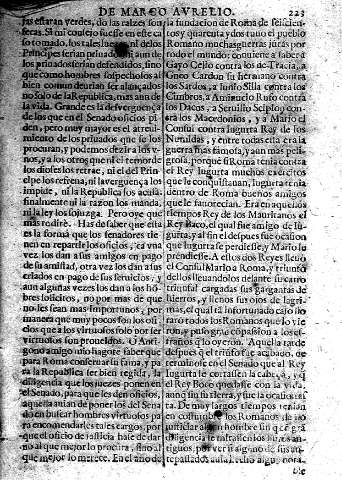 DE MARCO AVRELIO. 223
jas estaran verdes, do las raizes son
feras. Si mi consejo fuesse en este ca
so tomado, los tales ni
Principes serian priuados, ni aun de
los priuados serian defendidos, sino
que como hombres sospechosos al
bien comun deurian ser alançados
no solo de la Republica, mas aun de
la vida. Grande es la desverguença
de los que en el Senado oficios pi
den, pero muy mayor es el atreui-
miento de los priuados que se los
procuran, y podemos dezir a los v-
nos, y a los otros que ni el temor de
los dioses los retrae, ni el del Prin-
cipe los refrena, ni la verguença los
impide, ni la Republica los acusa:
finalmente ni la razon los manda,
ni la ley los sojuzga. Pero oye que
mas te diré. Has de saber que esta
es la forma que los senadores tie-
nen en repartir los oficios, que vna
vez los dan a sus amigos en pago
de su amistad, otra vez los dan a sus
criados en pago de sus seruicios, y
aun algunas vezes los dan a los hom
bres solicitos, no por mas de que
no les sean mas importunos, por
manera que muy pocos son los ofi
cios que a los virtuosos solo por ser
virtuosos son proueidos. O Anti-
gono amigo mio hagote saber que
para Roma conseruar su fama, y pa
ra la Republica ser bien regida, la
diligencia que los juezes ponen en
el Senado, para que les den oficios,
aquella auian de poner los del Sena
do en buscar hombres virtuosos pa
ra encomendarles tales cargos, por
que el oficio de justicia hase de dar
no al que mejor lo procura, sino al
que mejor lo merece. En el año de
la fundacion de Roma de seiscien-
tos y quarenta y dos tuuo el pueblo
Romano muchas guerras juntas por
todo el mundo: conuiene a saber
Gayo Celio contra los de Tracia,
Gneo Cardon su hermano contra
los Sardos, Iunio Silla contra los
Cimbros, Minucio Rufo contra
los Dacos, Seruilio Scipion con-
tra los Macedonios, y a Mario el
Consul contra Iugurta Rey de los
Numidas, y entre todas esta era la
guerra mas famosa, y aun mas peli-
grosa, porque si Roma tenia contra
el Rey muchos exercitos
que le conquistauan, Iugurta tenia
dentro de Roma buenos amigos
que le fauorecian. Era en aquellos
tiempos Rey de los Mauritanos el
Rey Baco, el qual fue amigo de Iu-
gurta, y al fin despues fue ocasion
que Iugurta se perdiesse, y Mario lo
prendiesse. A estos dos Reyes lleuò
el Consul Mario a Roma, y triunfò
dellos lleuandolos delante su carro
triunfal cargadas sus gargantas de
hierros, y llenos sus ojos de lagri-
mas, el qual infortunado caso llo
raron todos los Romanos que lo vie
ron, y puso gran compassion a los es-
traños q̃ lo oyeron. Aquella tarde
despues q̃ el triunfo fue acabado, de
terminose en el Senado que al Rey
Iugurta le cortassen la cabeça, y al
Rey Boco quedasse con la vida,
aunq̃ sin su tierra, y fue la ocasion
esta. De muy largos tiempos tenian
en costumbre los Romanos de no
justiciar hombre sin que cõ gra
diligencia mirassen los libros an-
tiguos, por ver si alguno de sus an-
tepassados auia hecho algun